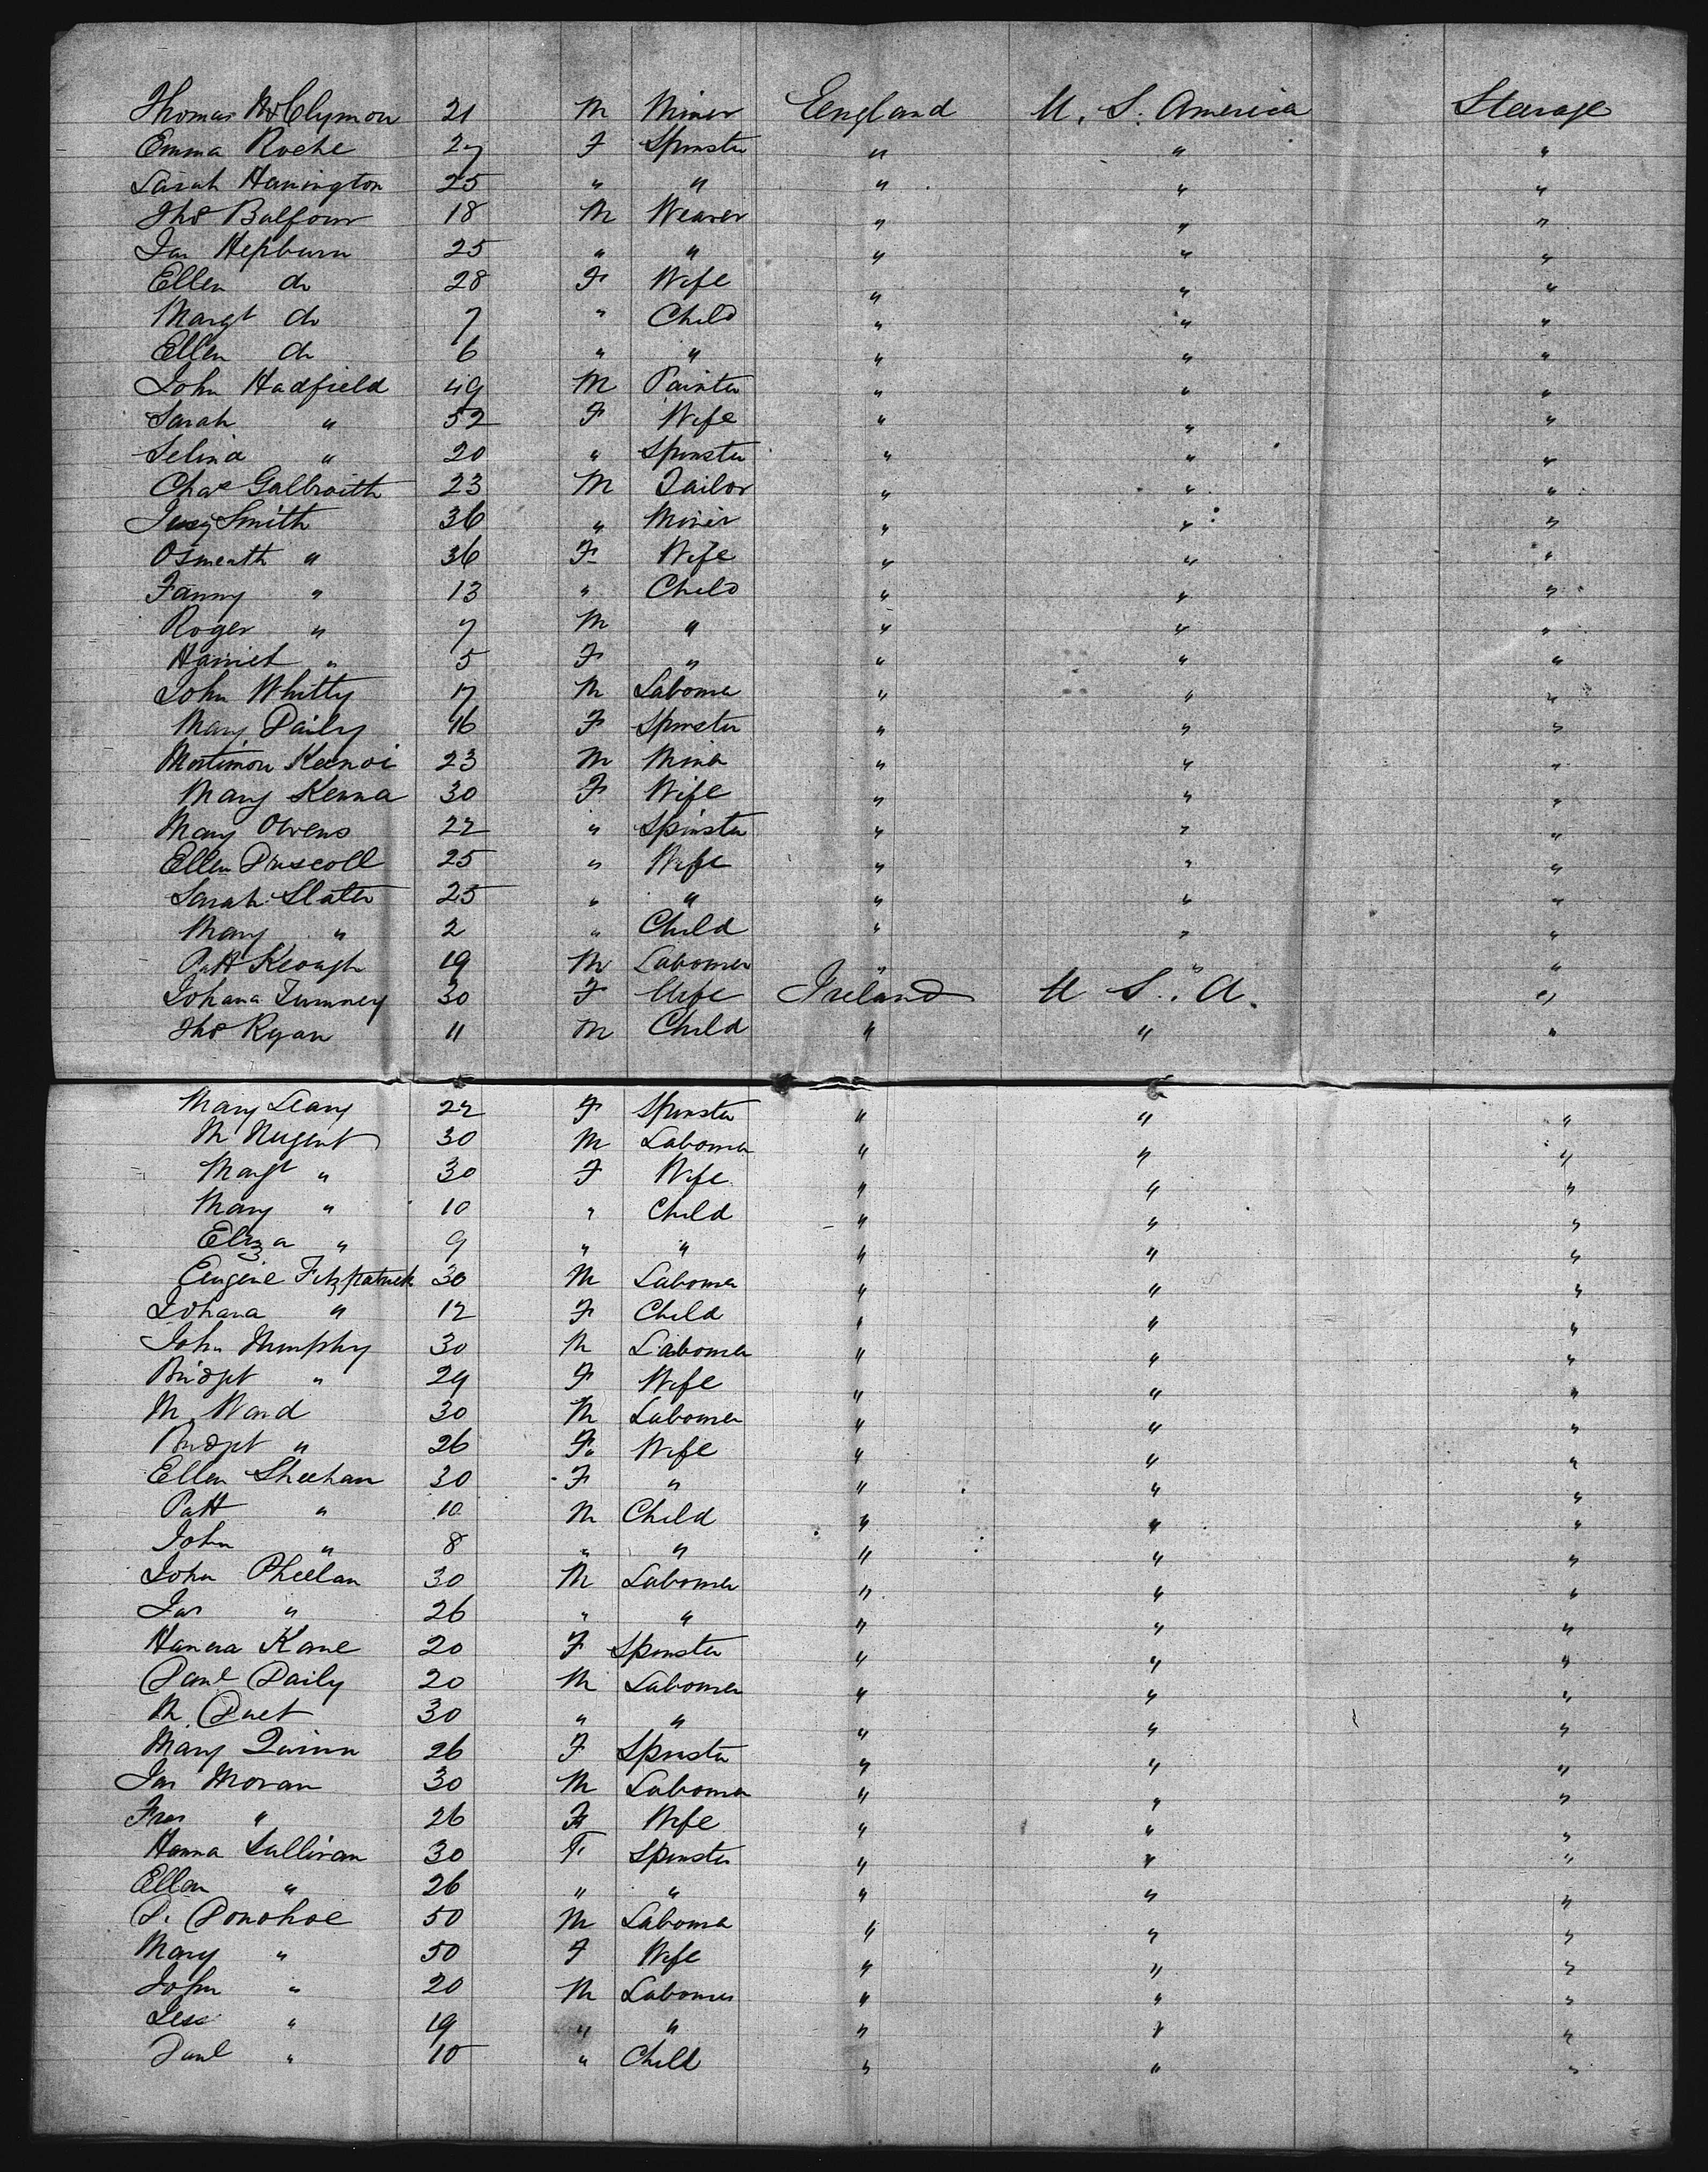 Thomas McClymon 21 M Miner England U. S. America Steerage
Emma Roche 27 F Spinster " " "
Sarah Hanington 25 " " " " "
Thos Balfour 18 M Weaver " " "
Jas Hepburn 25 " " " " "
Ellen do 28 F Wife " " "
Margt do 7 " Child " " "
Ellen do 6 " " " " "
John Hadfield 49 M Painter " " "
Sarah " 52 F Wife " " "
Selina " 20 " Spinster " " "
Chas Galbraith 23 M Tailor " " "
Smith 36 " Miner " " "
Osmenth " 36 F Wife " " "
Fanny " 13 " Child " " "
Roger " 7 M " " " "
Harriet " 5 F " " " "
John Whitty 17 M Labourer " " "
Mary Daily 16 F Spinster " " "
Mortimon 23 M Miner " " "
Mary Kenna 30 F Wife " " "
Mary Owens 22 " Spinster " " "
Ellen Driscoll 25 " Wife " " "
Sarah Slater 25 " " " " "
Mary " 2 " Child " " "
Patt Keough 19 M Labourer " " "
Johana Tumney 30 F Wife Ireland U S. A. "
Thos Ryan 11 M Child " " "
Mary Leary 22 F Spinster " " "
M Nugent 30 M Labourer " " "
Margt " 30 F Wife " " "
Mary " 10 " Child " " "
Eliza " 9 " " " " "
Eugene Fitzpatrick 30 M Labourer " " "
Johana " 12 F Child " " "
John Murphy 30 M Labourer " " "
Bridgt " 29 F Wife " " "
M. Ward 30 M Labourer " " "
Bridgt " 26 F Wife " " "
Ellen Sheehan 30 F " " " "
Patt " 10 M Child " " "
John " 8 " " " " "
John Pheelan 30 M Labourer " " "
Jas " 26 " " " " "
Hanna Kane 20 F Spinster " " "
Danl Daily 20 M Labourer " " "
M. 30 " " " " "
Mary Quinn 26 F Spinster " " "
Jas Moran 30 M Labourer " " "
Fras " 26 F Wife " " "
Hanna Sullivan 30 F Spinster " " "
Ellen " 26 " " " " "
D. Donohoe 50 M Labourer " " "
Mary " 50 F Wife " " "
John " 20 M Labourer " " "
" 19 " " " " "
Danl " 10 " Child " " "